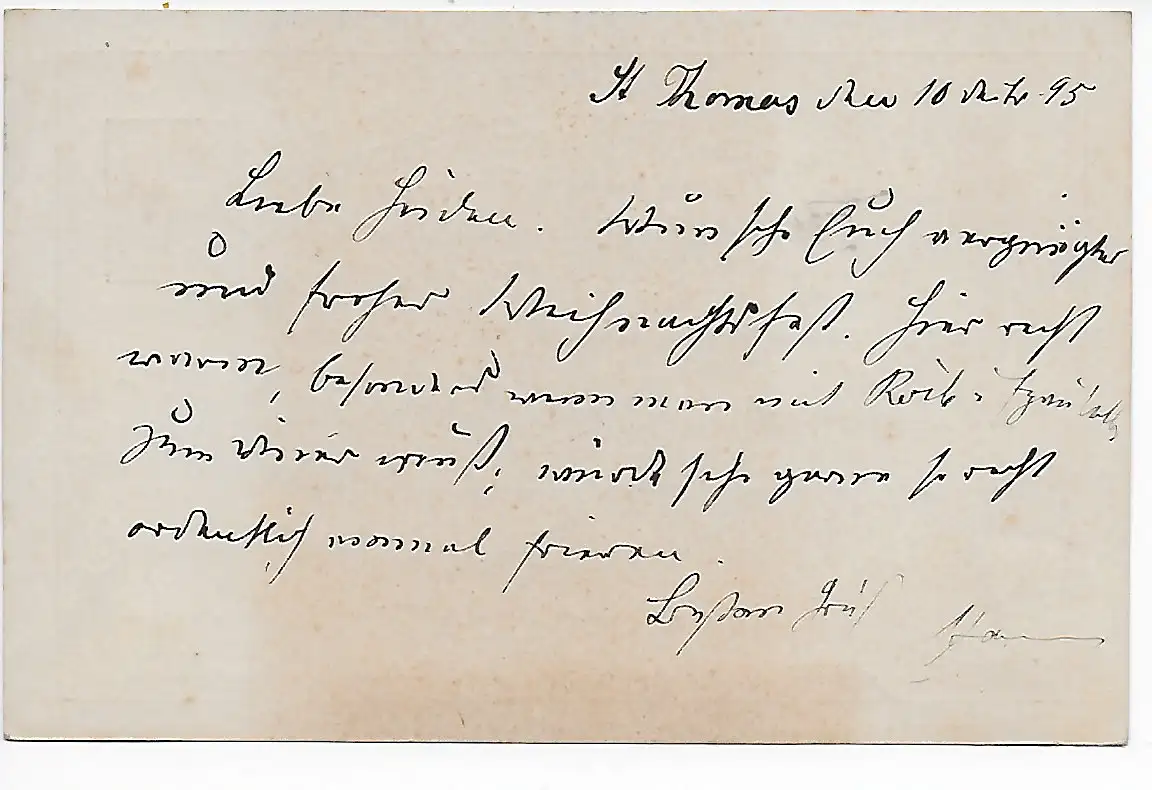 St Thomas den 10 Dcbr. 95
Liebe . Wünsche Euch vergnügtes
und frohes Weihnachtsfest. Hier recht
warm, besonders wenn man mit Rock &
zum Diner muß; würde sehr gerne so recht
ordentlich mal frieren.
Besten Gruß